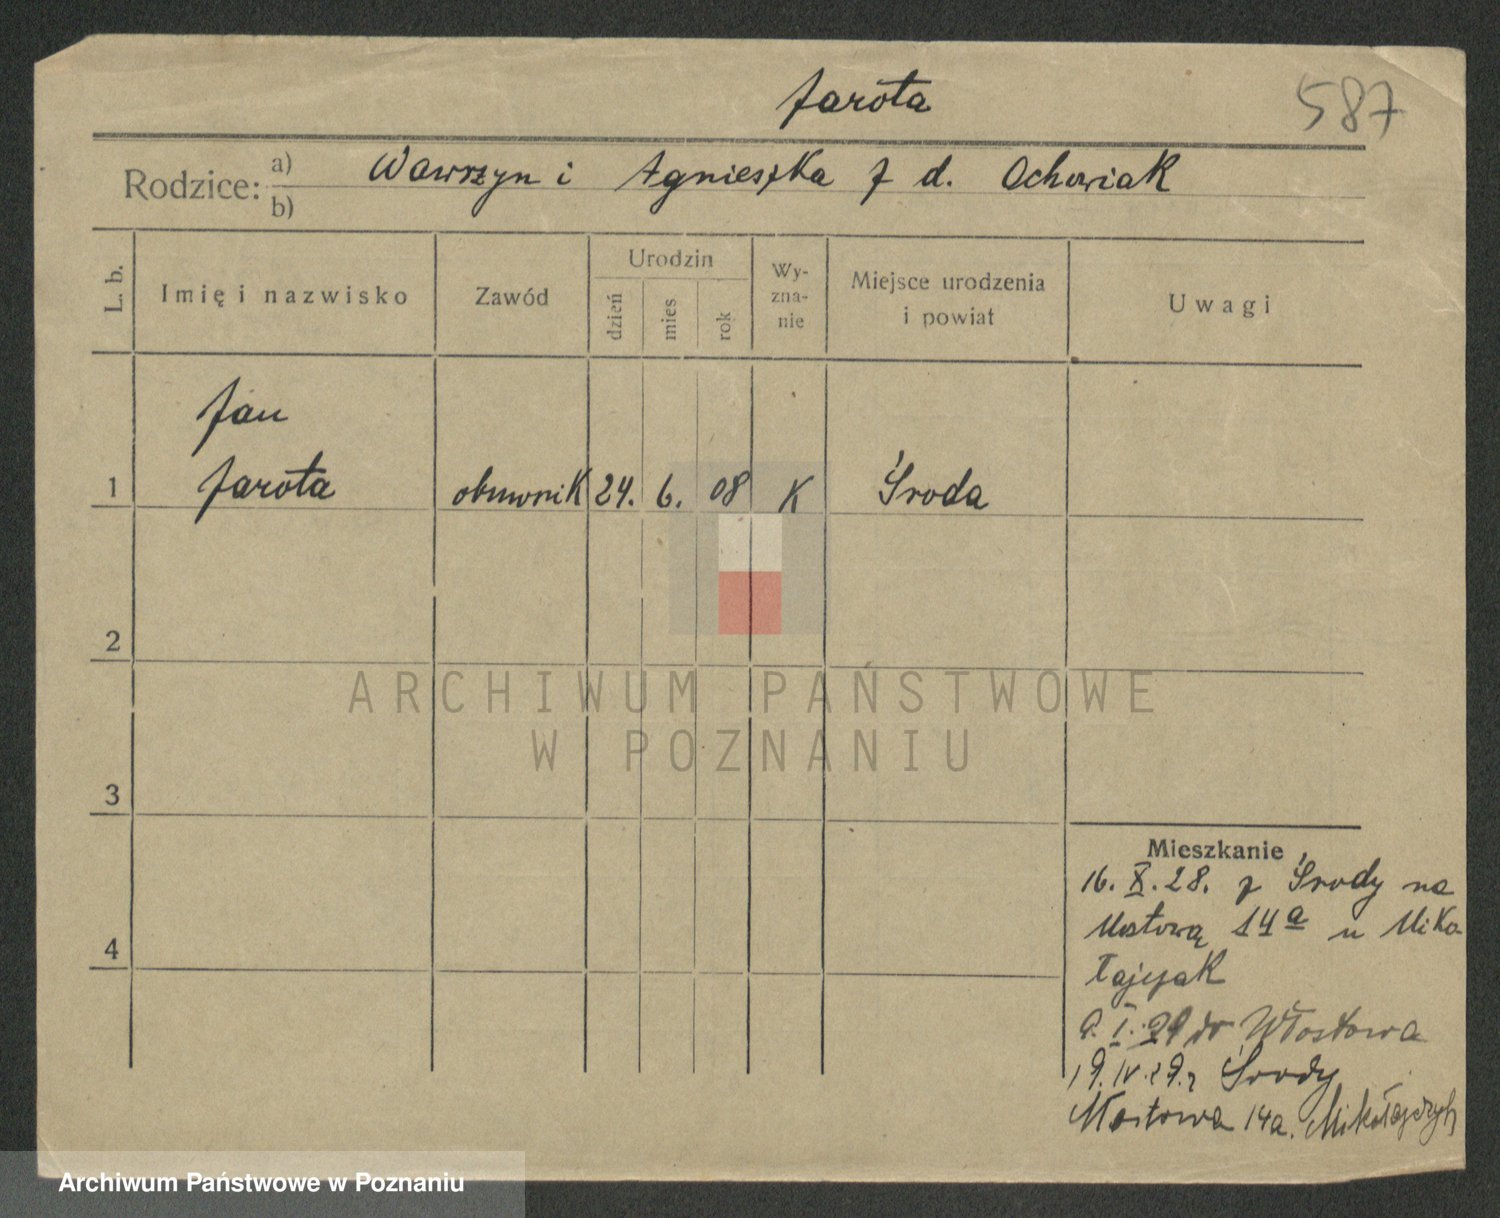 Jarota
587
Rodzice: a) b) Wawrzyn i Agnieszka z d. Ochowiak
L. b. Imię i nazwisko Zawód Urodzin dzień mies rok Wyznanie Miejsce urodzenia i powiat Uwagi
Jan
1 Jarota obuwnik 24. 6. 08 K Środa
2
ARCHIWUM PAŃSTWOWE
W POZNANIU
3
4
Mieszkanie
16. X. 28. z Środy na
Mostową 14a u Miko
łajczak
9. I. 29 do Włostowa
19. IV. 29. z Środy
Mostowa 14a.
Archiwum Państwowe w Poznaniu